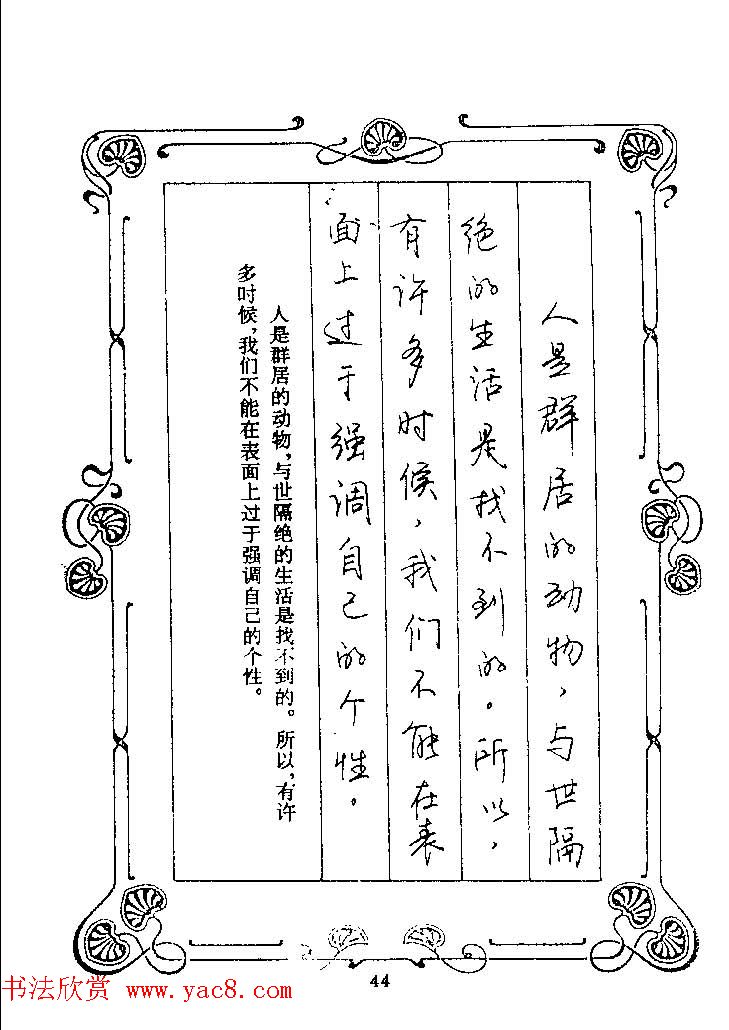 人是群居的动物，与世隔
绝的生活是找不到的。所以，
有许多时候，我们不能在表
面上过于强调自己的个性。
人是群居的动物，与世隔绝的生活是找不到的。所以，有许
多时候，我们不能在表面上过于强调自己的个性。
44
书法欣赏 www.yac8.com